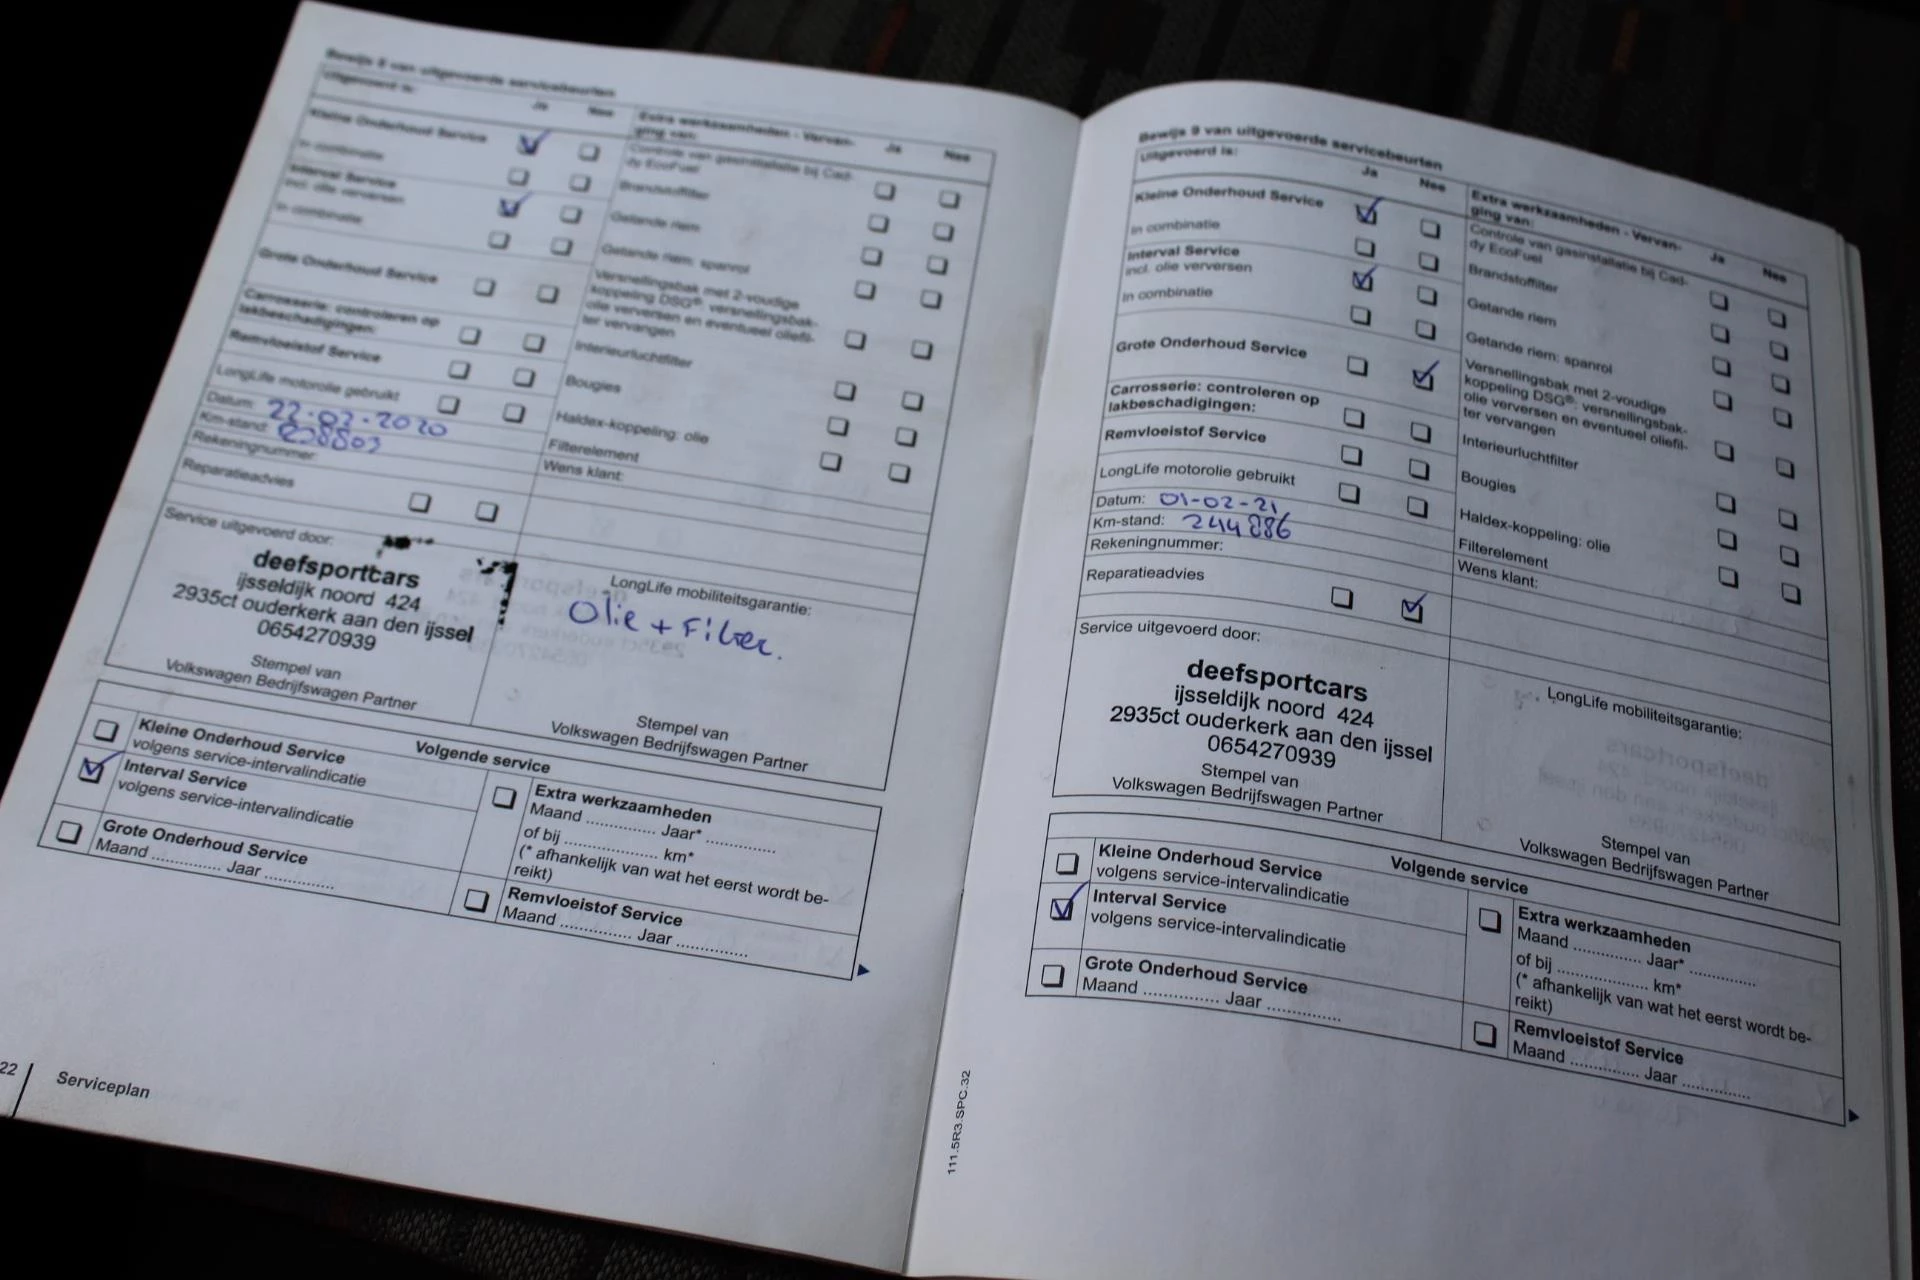 Bewijs 8 van uitgevoerde servicebeurten
Uitgevoerd is:
Ja Nee
Kleine Onderhoud Service
In combinatie
Interval Service
incl. olie verversen
In combinatie
Grote Onderhoud Service
Carrosserie: controleren op
lakbeschadigingen:
Remvloeistof Service
LongLife motorolie gebruikt
Datum: 22-02-2020
Km-stand:
Rekeningnummer:
Reparatieadvies
Extra werkzaamheden - Vervan-
ging van:
Ja Nee
Controle van gasinstallatie bij Cad-
dy EcoFuel
Brandstoffilter
Getande riem
Getande riem: spanrol
Versnellingsbak met 2-voudige
koppeling DSG®: versnellingsbak-
olie verversen en eventueel oliefil-
ter vervangen
Interieurluchtfilter
Bougies
Haldex-koppeling: olie
Filterelement
Wens klant:
Service uitgevoerd door:
deefsportcars
ijsseldijk noord 424
2935ct ouderkerk aan den ijssel
0654270939
Stempel van
Volkswagen Bedrijfswagen Partner
LongLife mobiliteitsgarantie:
Olie + Filter.
Stempel van
Volkswagen Bedrijfswagen Partner
Volgende service
Kleine Onderhoud Service
volgens service-intervalindicatie
Interval Service
volgens service-intervalindicatie
Grote Onderhoud Service
Maand .............. Jaar ..............
Extra werkzaamheden
Maand .............. Jaar* ..............
of bij ................... km*
(* afhankelijk van wat het eerst wordt be-
reikt)
Remvloeistof Service
Maand .............. Jaar ..............
22
Serviceplan
Bewijs 9 van uitgevoerde servicebeurten
Uitgevoerd is:
Ja Nee
Kleine Onderhoud Service
In combinatie
Interval Service
incl. olie verversen
In combinatie
Grote Onderhoud Service
Carrosserie: controleren op
lakbeschadigingen:
Remvloeistof Service
LongLife motorolie gebruikt
Datum: 01-02-21
Km-stand: 244886
Rekeningnummer:
Reparatieadvies
Extra werkzaamheden - Vervan-
ging van:
Ja Nee
Controle van gasinstallatie bij Cad-
dy EcoFuel
Brandstoffilter
Getande riem
Getande riem: spanrol
Versnellingsbak met 2-voudige
koppeling DSG®: versnellingsbak-
olie verversen en eventueel oliefil-
ter vervangen
Interieurluchtfilter
Bougies
Haldex-koppeling: olie
Filterelement
Wens klant:
Service uitgevoerd door:
deefsportcars
ijsseldijk noord 424
2935ct ouderkerk aan den ijssel
0654270939
Stempel van
Volkswagen Bedrijfswagen Partner
LongLife mobiliteitsgarantie:
Stempel van
Volkswagen Bedrijfswagen Partner
Volgende service
Kleine Onderhoud Service
volgens service-intervalindicatie
Interval Service
volgens service-intervalindicatie
Grote Onderhoud Service
Maand .............. Jaar ..............
Extra werkzaamheden
Maand .............. Jaar* ..............
of bij ................... km*
(* afhankelijk van wat het eerst wordt be-
reikt)
Remvloeistof Service
Maand .............. Jaar ..............
111.5R3.SPC.32